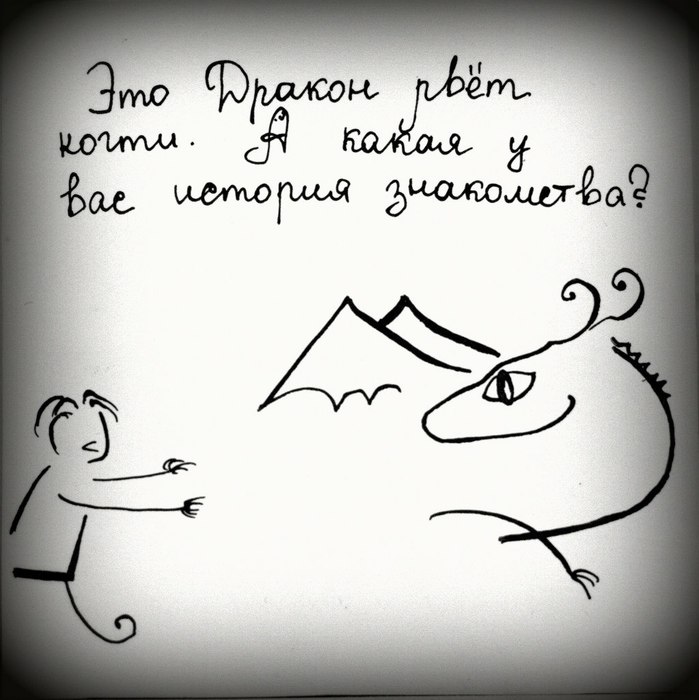 Это Дракон рвёт
когти. А какая у
вас история знакомства?